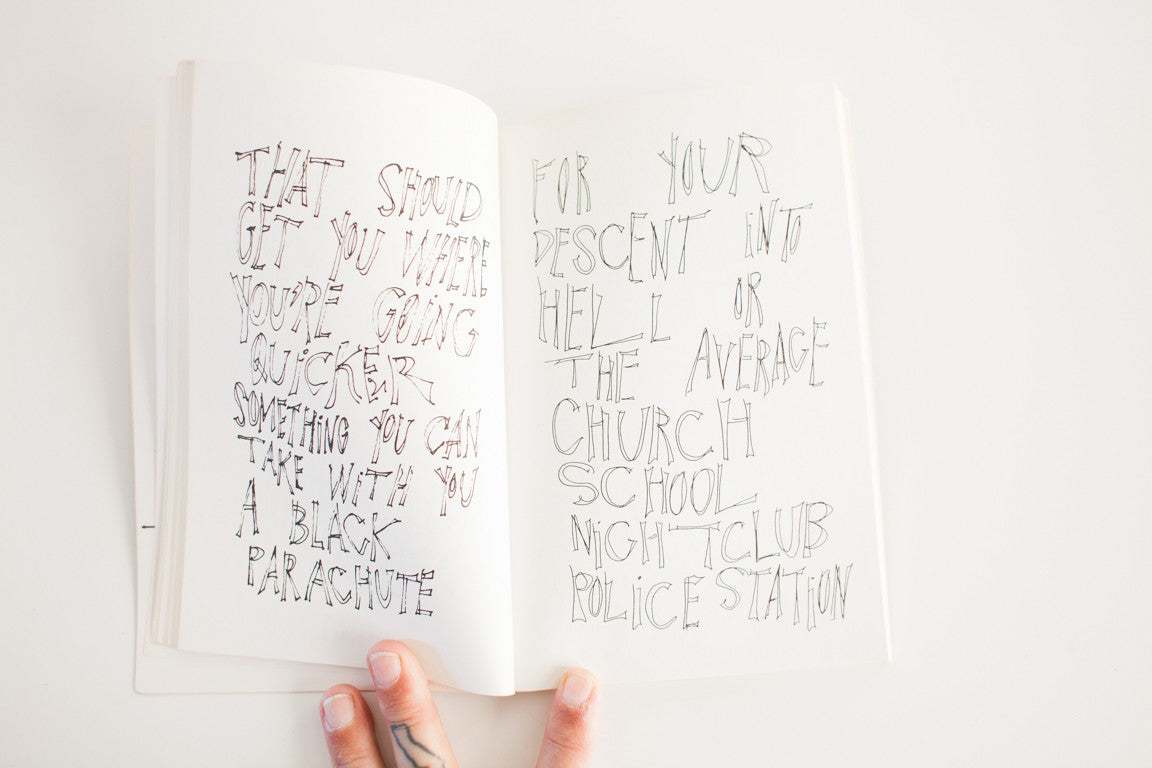 THAT SHOULD
GET YOU WHERE
YOU'RE GOING
QUICKER
SOMETHING YOU CAN
TAKE WITH YOU
A BLACK
PARACHUTE
FOR YOUR
DESCENT INTO
HELL OR
THE AVERAGE
CHURCH
SCHOOL
NIGHTCLUB
POLICE STATION